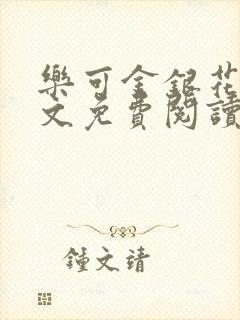 樂可金銀花
文免費閱讀
鍾文靖